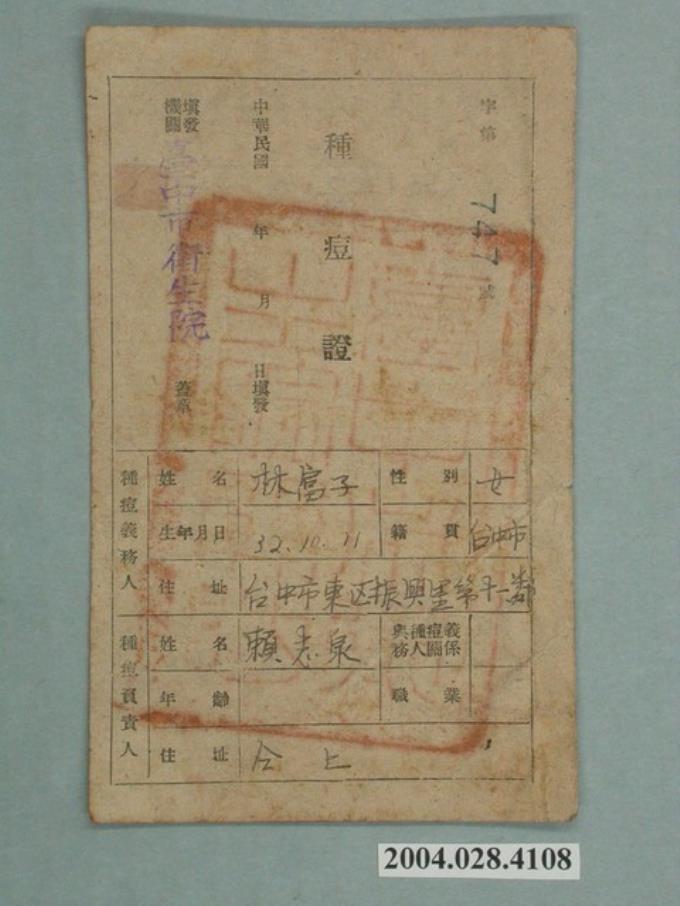 字第747號
種痘證
中華民國 年 月 日填發
填發機關 臺中市衛生院 蓋章
種痘義務人
姓名 林富子 性別 女
生年月日 32.10.11 籍貫 台中市
住址 台中市東区振興里第十一鄰
種痘負責人
姓名 賴志泉 與種痘義務人關係
年齡 職業
住址 仝上
2004.028.4108